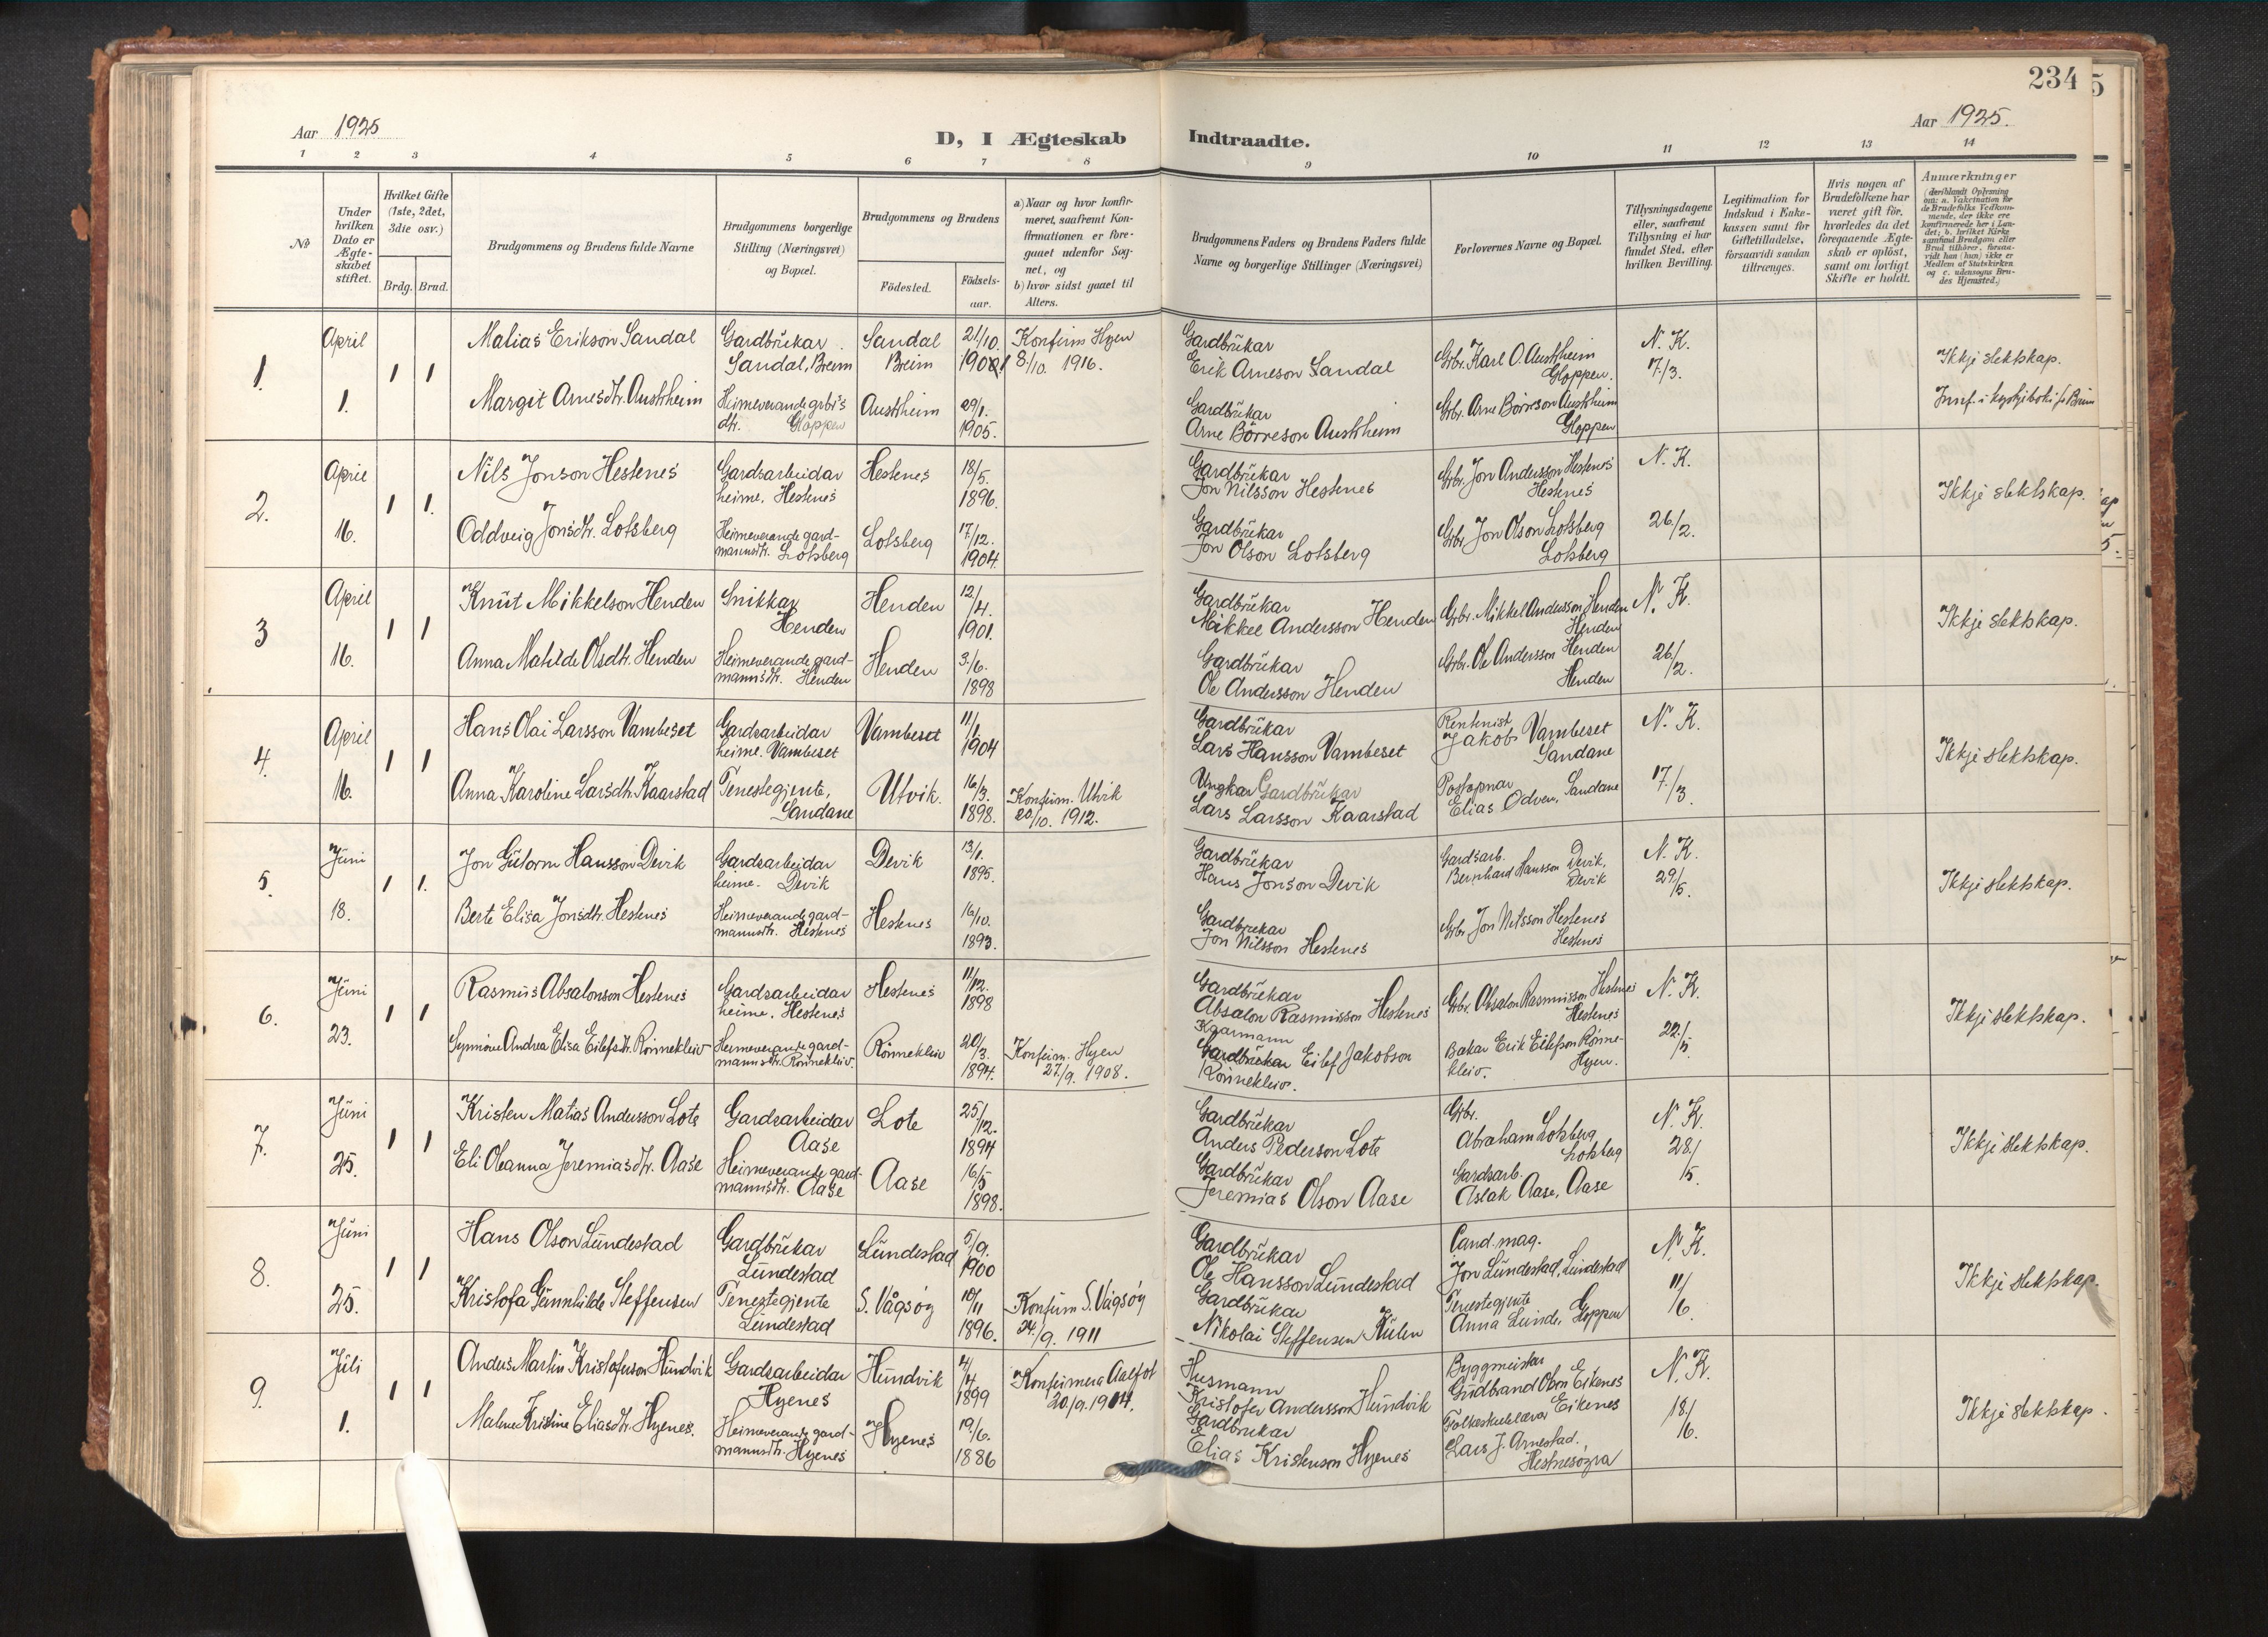 234
Aar 1925
D, I Ægteskab Indtraadte.
Aar 1925.
1 2 3 4 5 6 7 8 9 10 11 12 13 14
No
Under hvilken Dato er Ægteskabet stiftet.
Hvilket Gifte (1ste, 2det, 3die osv.)
Brdg. Brud.
Brudgommens og Brudens fulde Navne
Brudgommens borgerlige Stilling (Næringsvei) og Bopæl.
Brudgommens og Brudens
Födested.
Födselsaar.
a) Naar og hvor konfirmeret, saafremt Konfirmationen er foregaaet udenfor Sognet, og
b) hvor sidst gaaet til Alters.
Brudgommens Faders og Brudens Faders fulde Navne og borgerlige Stillinger (Næringsvei)
Forlovernes Navne og Bopæl.
Tillysningsdagene eller, saafremt Tillysning ei har fundet Sted, efter hvilken Bevilling.
Legitimation for Indskud i Enkekassen samt for Giftetilladelse, forsaavidt saadan tiltrænges.
Hvis nogen af Brudefolkene har været gift før, hvorledes da det foregaaende Ægteskab er oplöst, samt om lovligt Skifte er holdt.
Anmærkninger
(deriblandt Oplysning om: a. Vakcination for de Brudefolks Vedkommende, der ikke ere konfirmerede her i Landet; b. hvilket Kirkesamfund Brudgom eller Brud tilhörer, forsaavidt han (hun) ikke er Medlem af Statskirken og c. udensogns Brudes Hjemsted.)
1. April 1. 1 1
Matias Erikson Sandal
Gardbrükar Sandal, Breim
Sandal Breim
21/10. 1901
Konfirm Hyen 8/10. 1916.
Gardbrükar Erik Arneson Sandal
Grbr. Karl O. Austrheim Gloppen.
N. K. 17/3.
Ikkje slektskap.
Margit Arnesdtr. Austrheim
Heimeverande grbr's dtr. Gloppen
Austrheim
29/1. 1905.
Gardbrükar Arne Börreson Austrheim
Grbr. Arne Börreson Austrheim Gloppen
2. April 16. 1 1.
Nils Jonson Hestenes
Gardsarbeidar heime. Hestenes
Hestenes
18/5. 1896.
Gardbrükar Jon Nilsson Hestenes
Grbr. Jon Andersson Hestenes Hestenes
N. K. 26/2.
Ikkje slektskap.
Oddveig Jonsdtr. Lotsberg
Heimeverande gardmannsdtr. Lotsberg
Lotsberg
17/12. 1904.
Gardbrükar Jon Olson Lotsberg
Grbr. Jon Olson Lotsberg Lotsberg
3 April 16. 1 1
Knüt Mikkelson Henden
Snikkar Henden
Henden
12/4. 1901.
Gardbrükar Mikkel Andersson Henden
Grbr. Mikkel Andersson Henden Henden
N. K. 26/2.
Ikkje slektskap.
Anna Matilde Olsdtr. Henden
Heimeverande gardmannsdtr. Henden
Henden
3/6. 1898
Gardbrükar Ole Andersson Henden
Grbr. Ole Andersson Henden Henden
4. April 16. 1 1
Hans Olai Larsson Vambeset
Gardsarbeidar heime. Vambeset
Vambeset
11/1. 1904
Gardbrükar Lars Hansson Vambeset
Rentenist Jakob Vambeset Sandane
N. K. 17/3.
Ikkje slektskap.
Anna Karoline Larsdtr. Kaarstad
Tenestegjente, Sandane
Utvik.
16/3. 1898.
Konfirm. Utvik 20/10. 1912.
Ungkar Gardbrükar Lars Larsson Kaarstad
Postopnar Elias Odven, Sandane
5. Jüni 18. 1 1.
Jon Gütorm Hansson Devik
Gardsarbeidar heime. Devik
Devik
13/1. 1895.
Gardbrükar Hans Jonson Devik
Gardsarb. Bernhard Hansson Devik, Devik
N. K. 29/5.
Ikkje slektskap.
Berte Elisa Jonsdtr. Hestenes
Heimeverande gardmannsdtr. Hestenes
Hestenes
16/10. 1893.
Gardbrukar Jon Nilsson Hestenes
Grbr. Jon Nilsson Hestenes Hestenes
6. Jüni 23. 1 1
Rasmüs Absalonson Hestenes
Gardsarbeidar heime. Hestenes
Hestenes
11/12. 1898
Gardbrükar Absalon Rasmusson Hestenes
Grbr. Absalon Rasmusson Hestenes Hestenes
N. K. 22/5.
Ikkje slektskap.
Synnöve Andrea Elisa Eilefsdtr. Rönnekleiv
Heimeverande gardmannsdtr. Rönnekleiv.
Rönnekleiv
20/3. 1894.
Konfirm. Hyen 27/9. 1908.
Kaarmann Gardbrükar Eilef Jakobson Rönnekleiv.
Bakar Erik Eilefson Rönnekleiv. Hyen.
7. Jüni 25. 1 1
Kristen Matias Andersson Lote
Gardsarbeidar Aase
Lote
25/12. 1894
Gardbrükar Anders Pederson Lote
Grbr. Abraham Lotsberg Lotsberg
N. K. 28/5.
Ikkje slektskap.
Eli Oleanna Jeremiasdtr. Aase
Heimeverande gardmannsdtr. Aase
Aase
16/5 1898.
Gardbrükar Jeremias Olson Aase
Gardsarb. Aslak Aase, Aase
8. Jüni 25. 1 1
Hans Olson Lündestad
Gardbrükar Lündestad
Lündestad
5/9. 1900
Gardbrükar Ole Hansson Lündestad
Cand. mag. Jon Lündestad, Lündestad
N. K. 11/6.
Ikkje slektskap.
Kristofa Günnhilde Steffensen
Tenestegjente Lündestad
S. Vågsøy
10/11 1896.
Konfirm S. Vågsøy 24/9. 1911
Gardbrükar Nikolai Steffensen
Tenestegjente Anna Lunde, Gloppen
9. Jüli 1. 1 1
Anders Martin Kristoferson Hündvik
Gardsarbeidar Hyenes
Hündvik
4/4 1899
Konfirmera Aalfot 20/9. 1914.
Husmann Kristofer Andersson Hündvik
Byggmeister Güdbrand Eikenes Eikenes
N. K. 18/6.
Ikkje slektskap.
Malene Kristine Eliasdtr. Hyenes.
Heimeverande gardmannsdtr. Hyenes
Hyenes
19/6. 1886
Gardbrukar Elias Kristenson Hyenes
Folkeskulelærar Lars J. Arnestad,